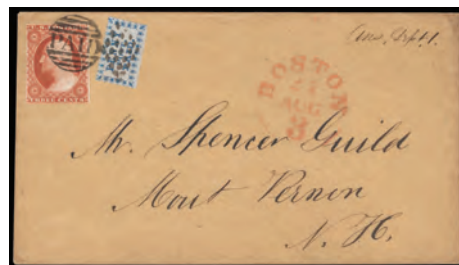 Ans. Sept 1.
PAID
THREE CENTS
BOSTON
AUG
3
Mr. Spencer Guild
Mout Vernon
N. H.